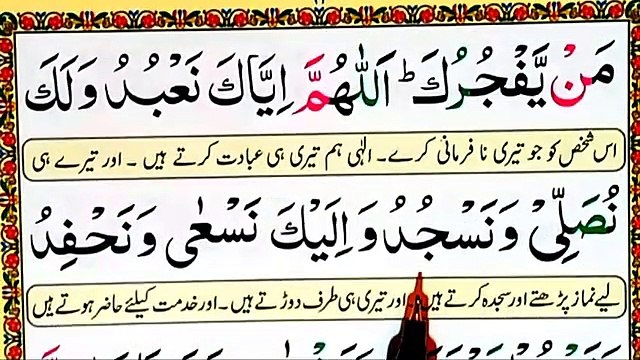 مَنْ يَّفْجُرُكَ ؕ اَللّٰهُمَّ اِيَّاكَ نَعْبُدُ وَلَكَ
اس شخص کو جو تیری نا فرمانی کرے۔ الٰہی ہم تیری ہی عبادت کرتے ہیں ۔ اور تیرے ہی
نُصَلِّىْ وَنَسْجُدُ وَ اِلَيْكَ نَسْعٰى وَ نَحْفِدُ
لیے نماز پڑھتے اور سجدہ کرتے ہیں اور تیری ہی طرف دوڑتے ہیں ۔ اور خدمت کیلئے حاضر ہوتے ہیں